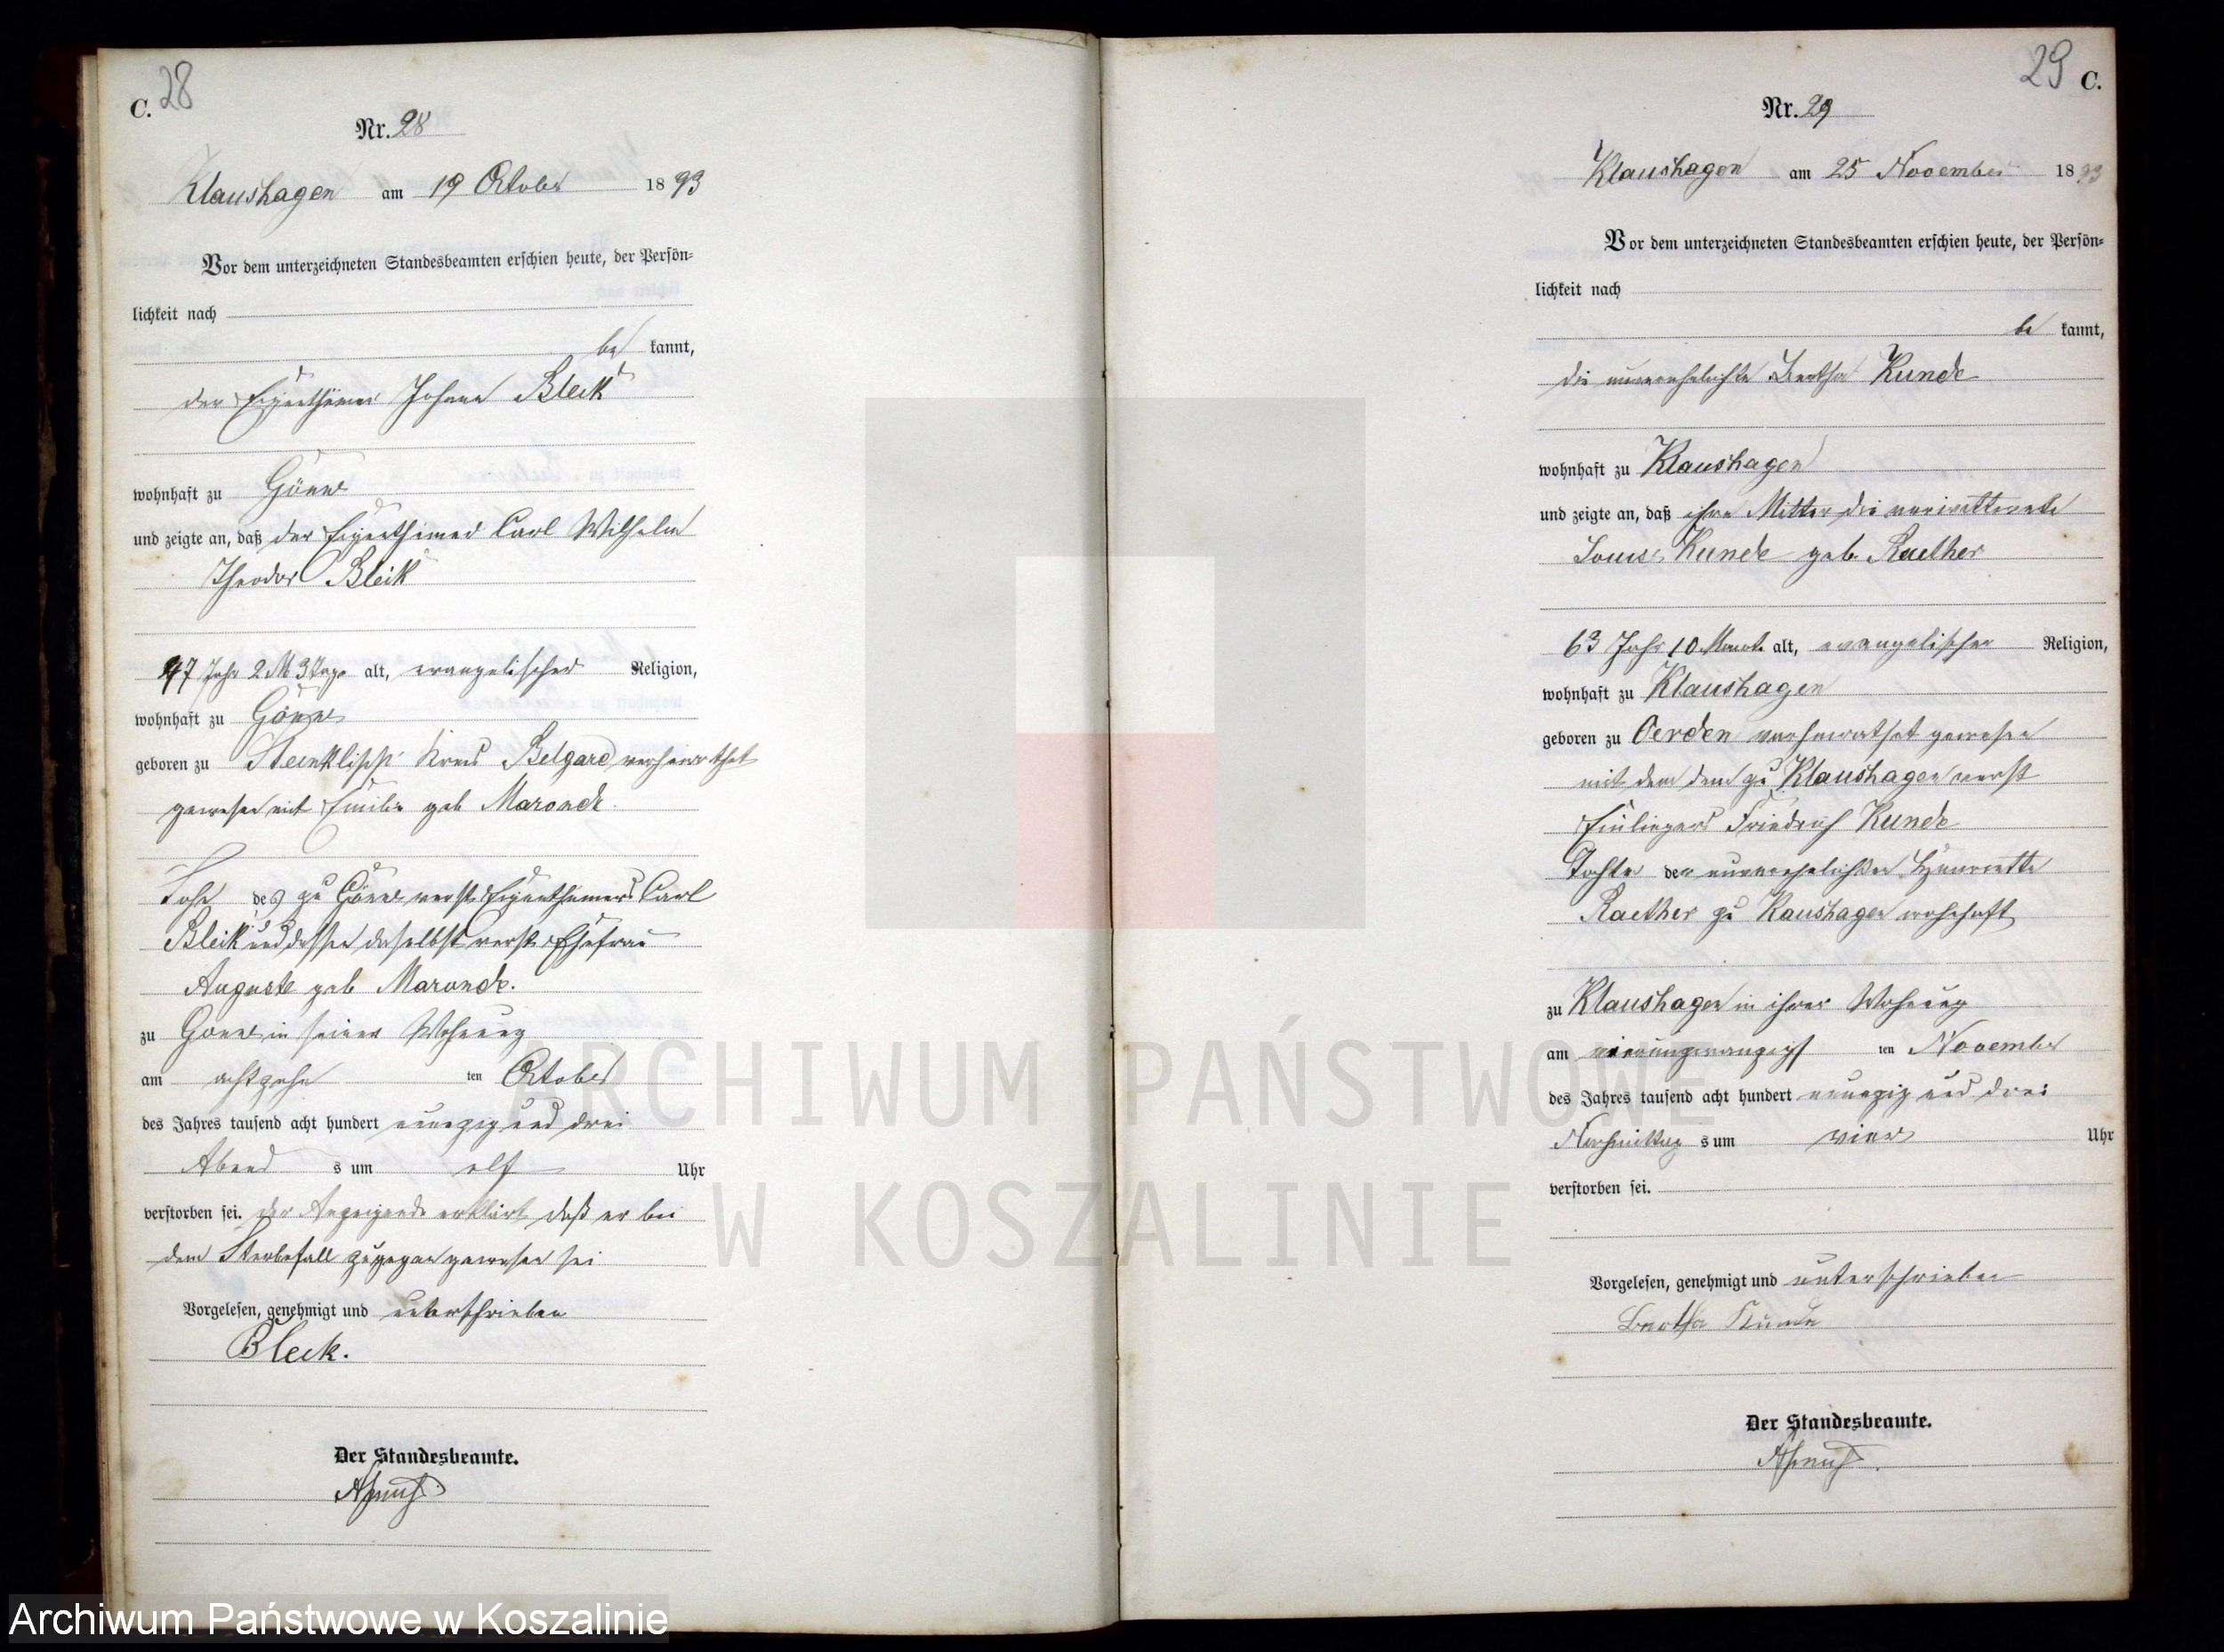 C. 28
Nr. 28
Klaushagen am 19 October 1893
Vor dem unterzeichneten Standesbeamten erschien heute, der Persön-
lichkeit nach
be kannt,
der Eigenthümer Johann Bleck
wohnhaft zu Gönne
und zeigte an, daß der Eigenthümer Carl Wilhelm
Theodor Bleik
47 Jahr 2 M 3 Tage alt, evangelischer Religion,
wohnhaft zu Gönne
geboren zu Steinklippe Kreis Belgard verheirathet
gewesen mit Emilie geb Maronde.
Sohn des zu Gönne verst. Eigenthümers Carl
Bleik und dessen daselbst verst. Ehefrau
Auguste geb Maronde.
zu Gönne in seiner Wohnung
am achtzehn ten October
des Jahres tausend acht hundert neunzig und drei
Abend s um elf Uhr
verstorben sei. der Anzeigende erklärt, daß er bei
dem Sterbefall zugegen gewesen sei
Vorgelesen, genehmigt und unterschrieben
Bleck.
Der Standesbeamte.
29 C.
Nr. 29
Klaushagen am 25 November 1893
Vor dem unterzeichneten Standesbeamten erschien heute, der Persön-
lichkeit nach
be kannt,
die unverehelichte Bertha Kunde
wohnhaft zu Klaushagen
und zeigte an, daß ihre Mutter die verwittwete
Louise Kunde geb. Raether
63 Jahr 10 Monate alt, evangelischer Religion,
wohnhaft zu Klaushagen
geboren zu Oerden verheirathet gewesen
mit dem dem zu Klaushagen verst
Einliegers Friedrich Kunde
Tochter der unverehelichten Henriette
Raether zu Kaushagen wohnhaft
zu Klaushagen in ihrer Wohnung
am vierundzwanzigst ten November
des Jahres tausend acht hundert neunzig und drei
Nachmittag s um vier Uhr
verstorben sei.
Vorgelesen, genehmigt und unterschrieben
Bertha Kunde
Der Standesbeamte.
ARCHIWUM PAŃSTWOWE
W KOSZALINIE
Archiwum Państwowe w Koszalinie